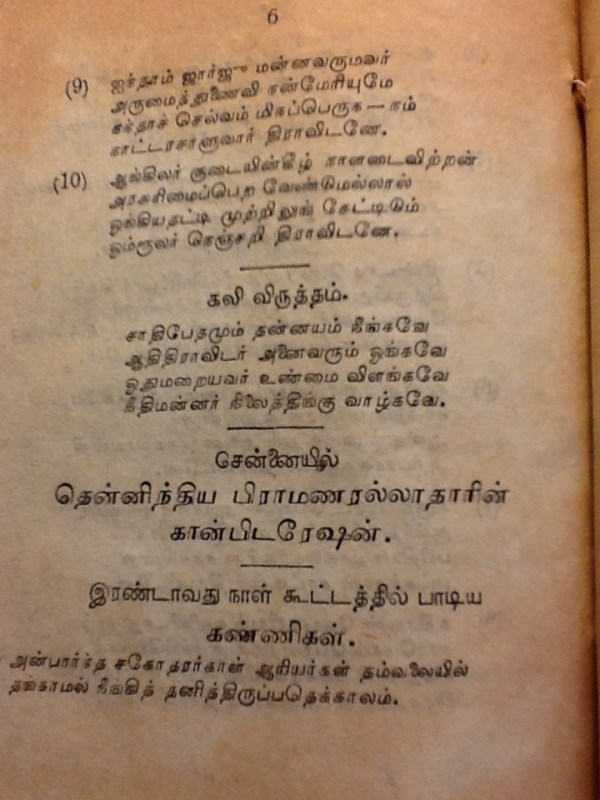 6
(9) ஐந்தாம் ஜார்ஜு மன்னவருமவர்
அருமைத்துணைவி நன்மேரியுமே
கந்தாச் செல்வம் மிகப்பெருக — நம்
காட்டரசாளுவார் திராவிடனே.
(10) ஆங்கிலர் குடையின்கீழ் நாளடைவிற்றன்
அரசுரிமைப்பெற வேண்டுமல்லால்
ஒங்கியதட்டி முற்றிலுங் கேட்டிடும்
ஒம்ரூலர் நெஞ்சறி திராவிடனே.
கலி விருத்தம்.
சாதிபேதமும் தன்னயம் நீங்கவே
ஆதிதிராவிடர் அனைவரும் ஓங்கவே
ஓதுமறையவர் உண்மை விளங்கவே
நீதிமன்னர் நிலைத்திங்கு வாழ்கவே.
சென்னையில்
தென்னிந்திய பிராமணரல்லாதாரின்
கான்பிடரேஷன்.
இரண்டாவது நாள் கூட்டத்தில் பாடிய
கண்ணிகள்.
அன்பார்ந்த சகோதரர்காள் ஆரியர்கள் தம்வலையில்
தங்காமல் நீங்கித் தனித்திருப்பதெக்காலம்.